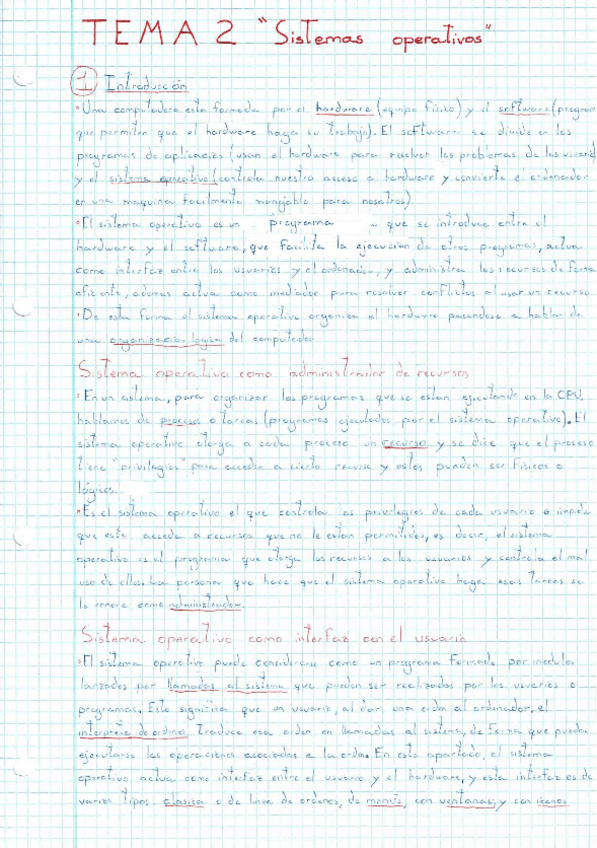 TEMA 2 "Sistemas operativos"
1 Introducción
· Una computadora esta formada por el hardware (equipo físico) y el software (program
que permiten que el hardware haga su trabajo). El software se divide en los
programas de aplicación (usan el hardware para resolver los problemas de los usuario
y el sistema operativo (controla nuestro acceso a hardware y convierte el ordenador
en una maquina facilmente manejable para nosotros)
· El sistema operativo es un programa que se introduce entre el
hardware y el software, que facilita la ejecucion de otros programas, actua
como interfaz entre los usuarios y el ordenador, y administra los recursos de forma
eficiente, ademas actua como mediador para resolver conflictos al usar un recurso
· De esta forma el sistema operativo organiza el hardware pasandose a hablar de
una organización lógica del computador
Sistema operativo como administrador de recursos
· En un sistema, para organizar los programas que se estan ejecutando en la CPU,
hablamos de proceso o tareas (programas ejecutados por el sistema operativo). El
sistema operativo otorga a cada proceso un recurso y se dice que el proceso
tiene "privilegios" para acceder a cierto recurso y estos pueden ser físicos o
lógicos.
· Es el sistema operativo el que controla os privilegios de cada usuario e impide
que este acceda a recursos que no le estan permitidos, es decir, el sistema
operativo es el programa que otorga los recursos a los usuarios y controla el mal
uso de ellos. La persona que hace que el sistema operativo haga esas tareas se
le conoce como administrador.
Sistema operativo como interfaz con el usuario
· El sistema operativo puede considerarse como un programa formado por modulos
lanzados por llamadas al sistema que pueden ser realizadas por los usuarios o
programas. Esto significa que un usuario, al dar una orden al ordenador, el
interprete de ordenes traduce esa orden en llamadas al sistema, de forma que puedan
ejecutarse las operaciones asociadas a la orden. En este apartado, el sistema
operativo actua como interfaz entre el usuario y el hardware, y esta interfaz es de
varios tipos: clasica o de linea de ordenes, de menús, con ventanas, y con iconos